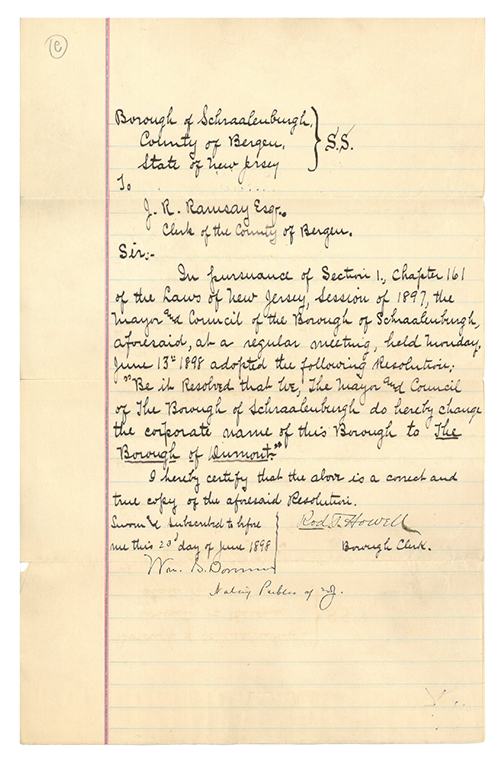 (e)
Borough of Schraalenburgh,
County of Bergen, } S.S.
State of New Jersey
To
J. R. Ramsay Esqr.
Clerk of the County of Bergen.
Sir:-
In pursuance of Section 1., Chapter 161
of the Laws of New Jersey, Session of 1897, the
Mayor and Council of the Borough of Schraalenburgh,
aforesaid, at a regular meeting, held Monday,
June 13th 1898 adopted the following Resolution;
"Be it Resolved that We, The Mayor and Council
of The Borough of Schraalenburgh do hereby change
the corporate name of this Borough to The
Borough of Dumont."
I hereby certify that the above is a correct and
true copy of the aforesaid Resolution.
Sworn & subscribed to before Rod. T. Howell
me this 23d day of June 1898 Borough Clerk.
Wm. B.
Notary Public of NJ.